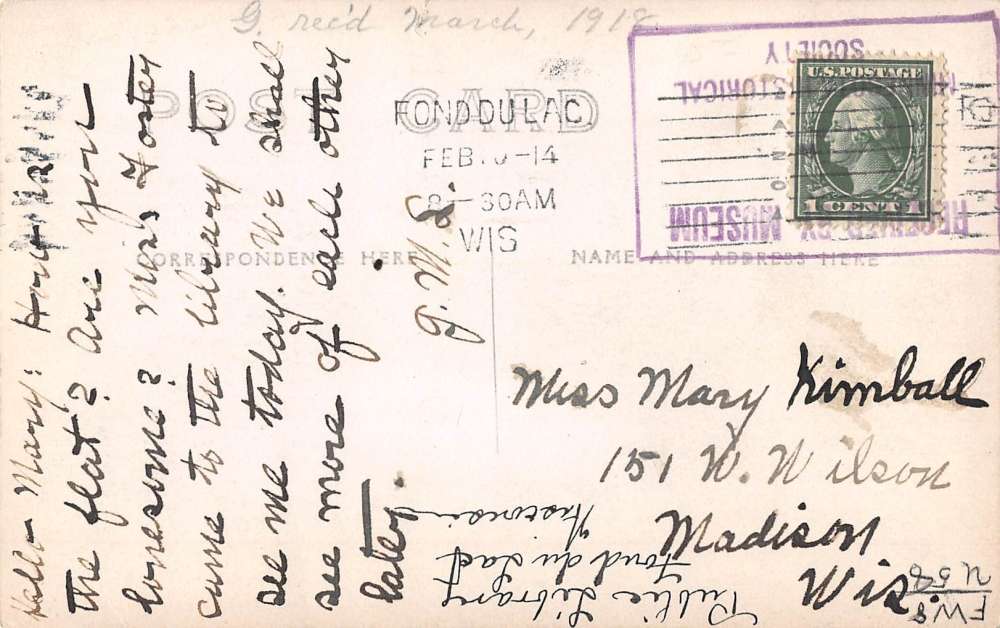 G. rec'd March, 1918
POST CARD
FOND DU LAC
FEB.
-14
8-30AM
WIS
RECEIVED BY MUSEUM
HISTORICAL
SOCIETY
U.S. POSTAGE
1 CENT 1
CORRESPONDENCE HERE
NAME AND ADDRESS HERE
Hello Mary: How
the flat? Are you
lonesome? Miss Foster
came to the library to
see me today. We shall
see more of each other
later.
G. M. S.
Miss Mary Kimball
151 W. Wilson
Madison
Wis.
Public Library
Fond du Lac
Wisconsin
FW8
U58